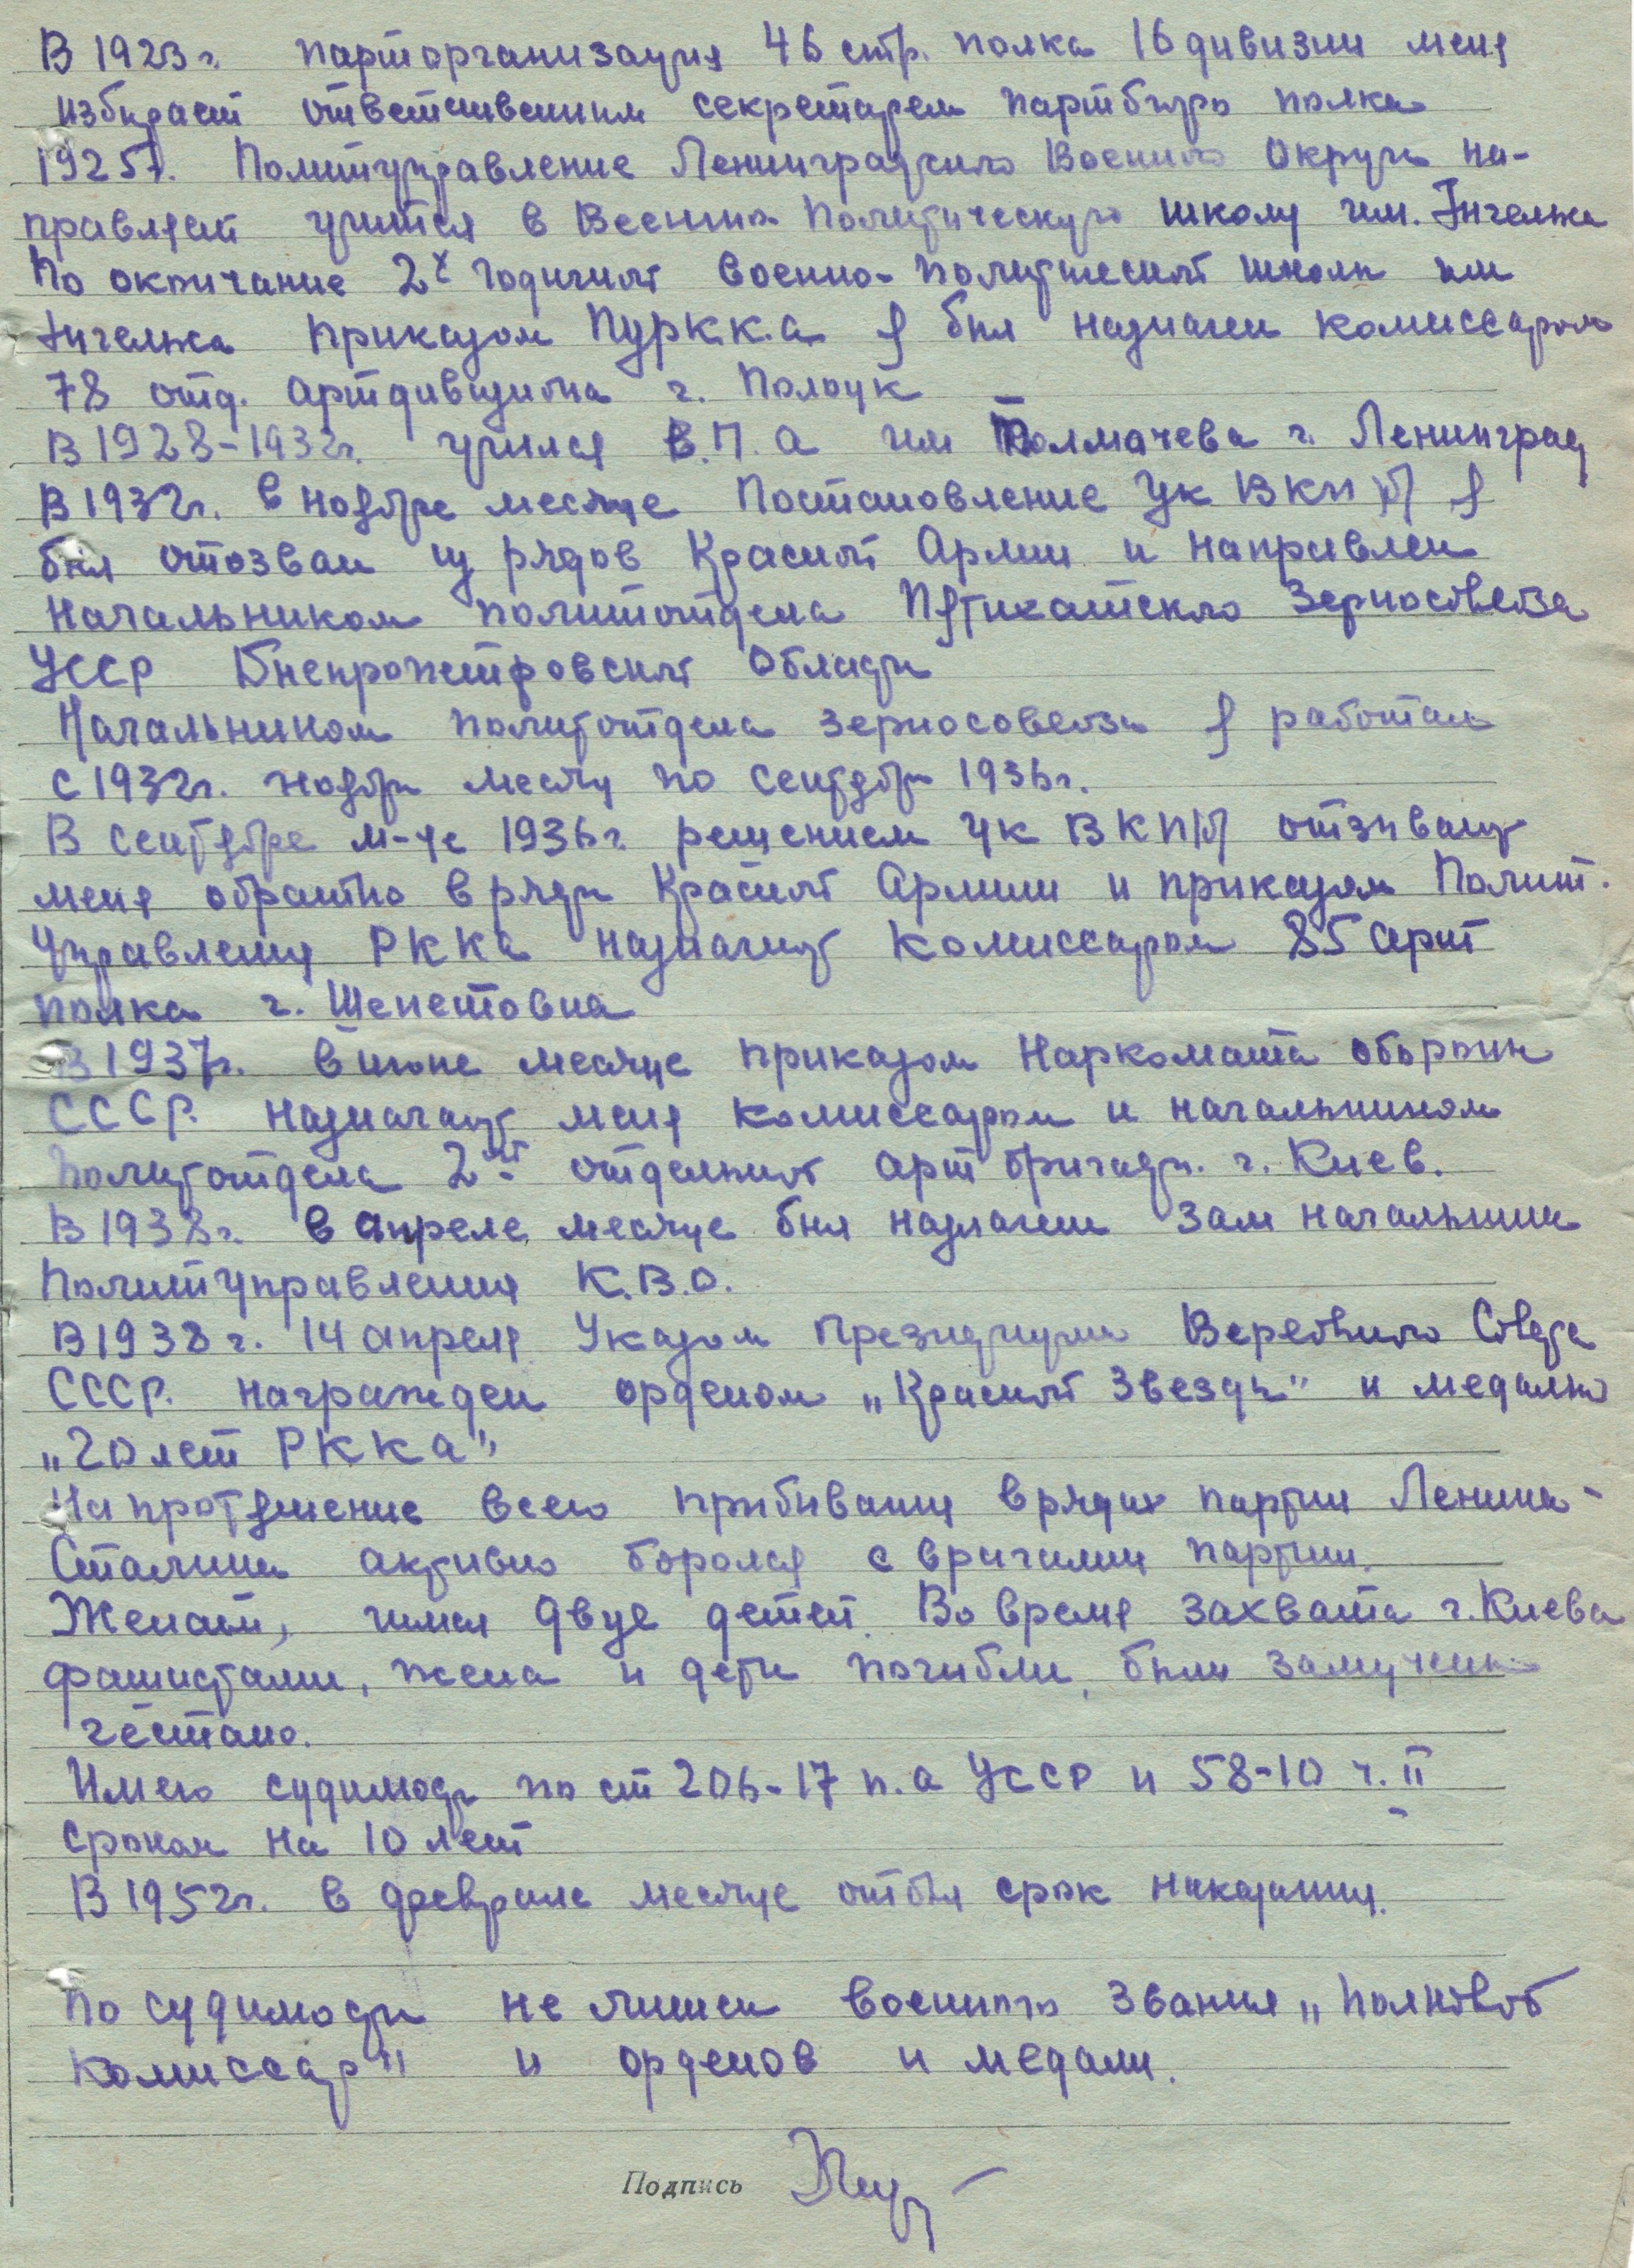 В 1923 г. парторганизация 46 стр. полка 16 дивизии меня
избирает ответственным секретарем партбюро полка
1925 г. Политуправление Ленинградского Военного Округа на-
правляет учится в Военно Политическую школу им. Энгельса
По окончание 2х годичной военно-политической школы им
Энгельса приказом ПУРК.К.А я был назначен комиссаром
78 отд. артдивизиона г. Полоцк
В 1928-1932г. учился В.П.А им Толмачева г. Ленинград
В 1932г. в ноябре месяце Постановление ЦК ВКП(б) я
был отозван из рядов Красной Армии и направлен
начальником политотдела Пятихатского Зерносовхоза
УССР Днепропетровской Области
Начальником политотдела зерносовхоза я работал
с 1932г. ноября месяц по сентябрь 1936г.
В сентябре м-це 1936г решением ЦК ВКП(б) отзывают
меня обратно в ряды Красной Армии и приказом Полит.
Управления РККА назначают комиссаром 85 арт
полка г. Шепетовка
В 1937г. в июне месяце приказом Наркомата обороны
СССР. назначают меня комиссаром и начальником
политотдела 2ой отдельной арт бригады. г. Киев.
В 1938г. в апреле месяце был назначен зам начальника
Политуправления К.В.О.
В 1938 г. 14 апреля Указом Президиума Верховного Совета
СССР. награжден орденом „Красной Звезды" и медалью
„20 лет РККА"
На протяжение всего прибывания в рядах партии Ленина-
Сталина активно боролся с врагами партии.
Женат, имел двое детей. Во время захвата г. Киева
фашистами, жена и дети погибли, были замучены
гестапо.
Имею судимость по ст 206-17 п. а УССР и 58-10 ч. II
сроком на 10 лет
В 1952г. в феврале месяце отбыл срок наказания.
По судимости не лишен военного звания „Полковой
комиссар" и орденов и медали.
Подпись